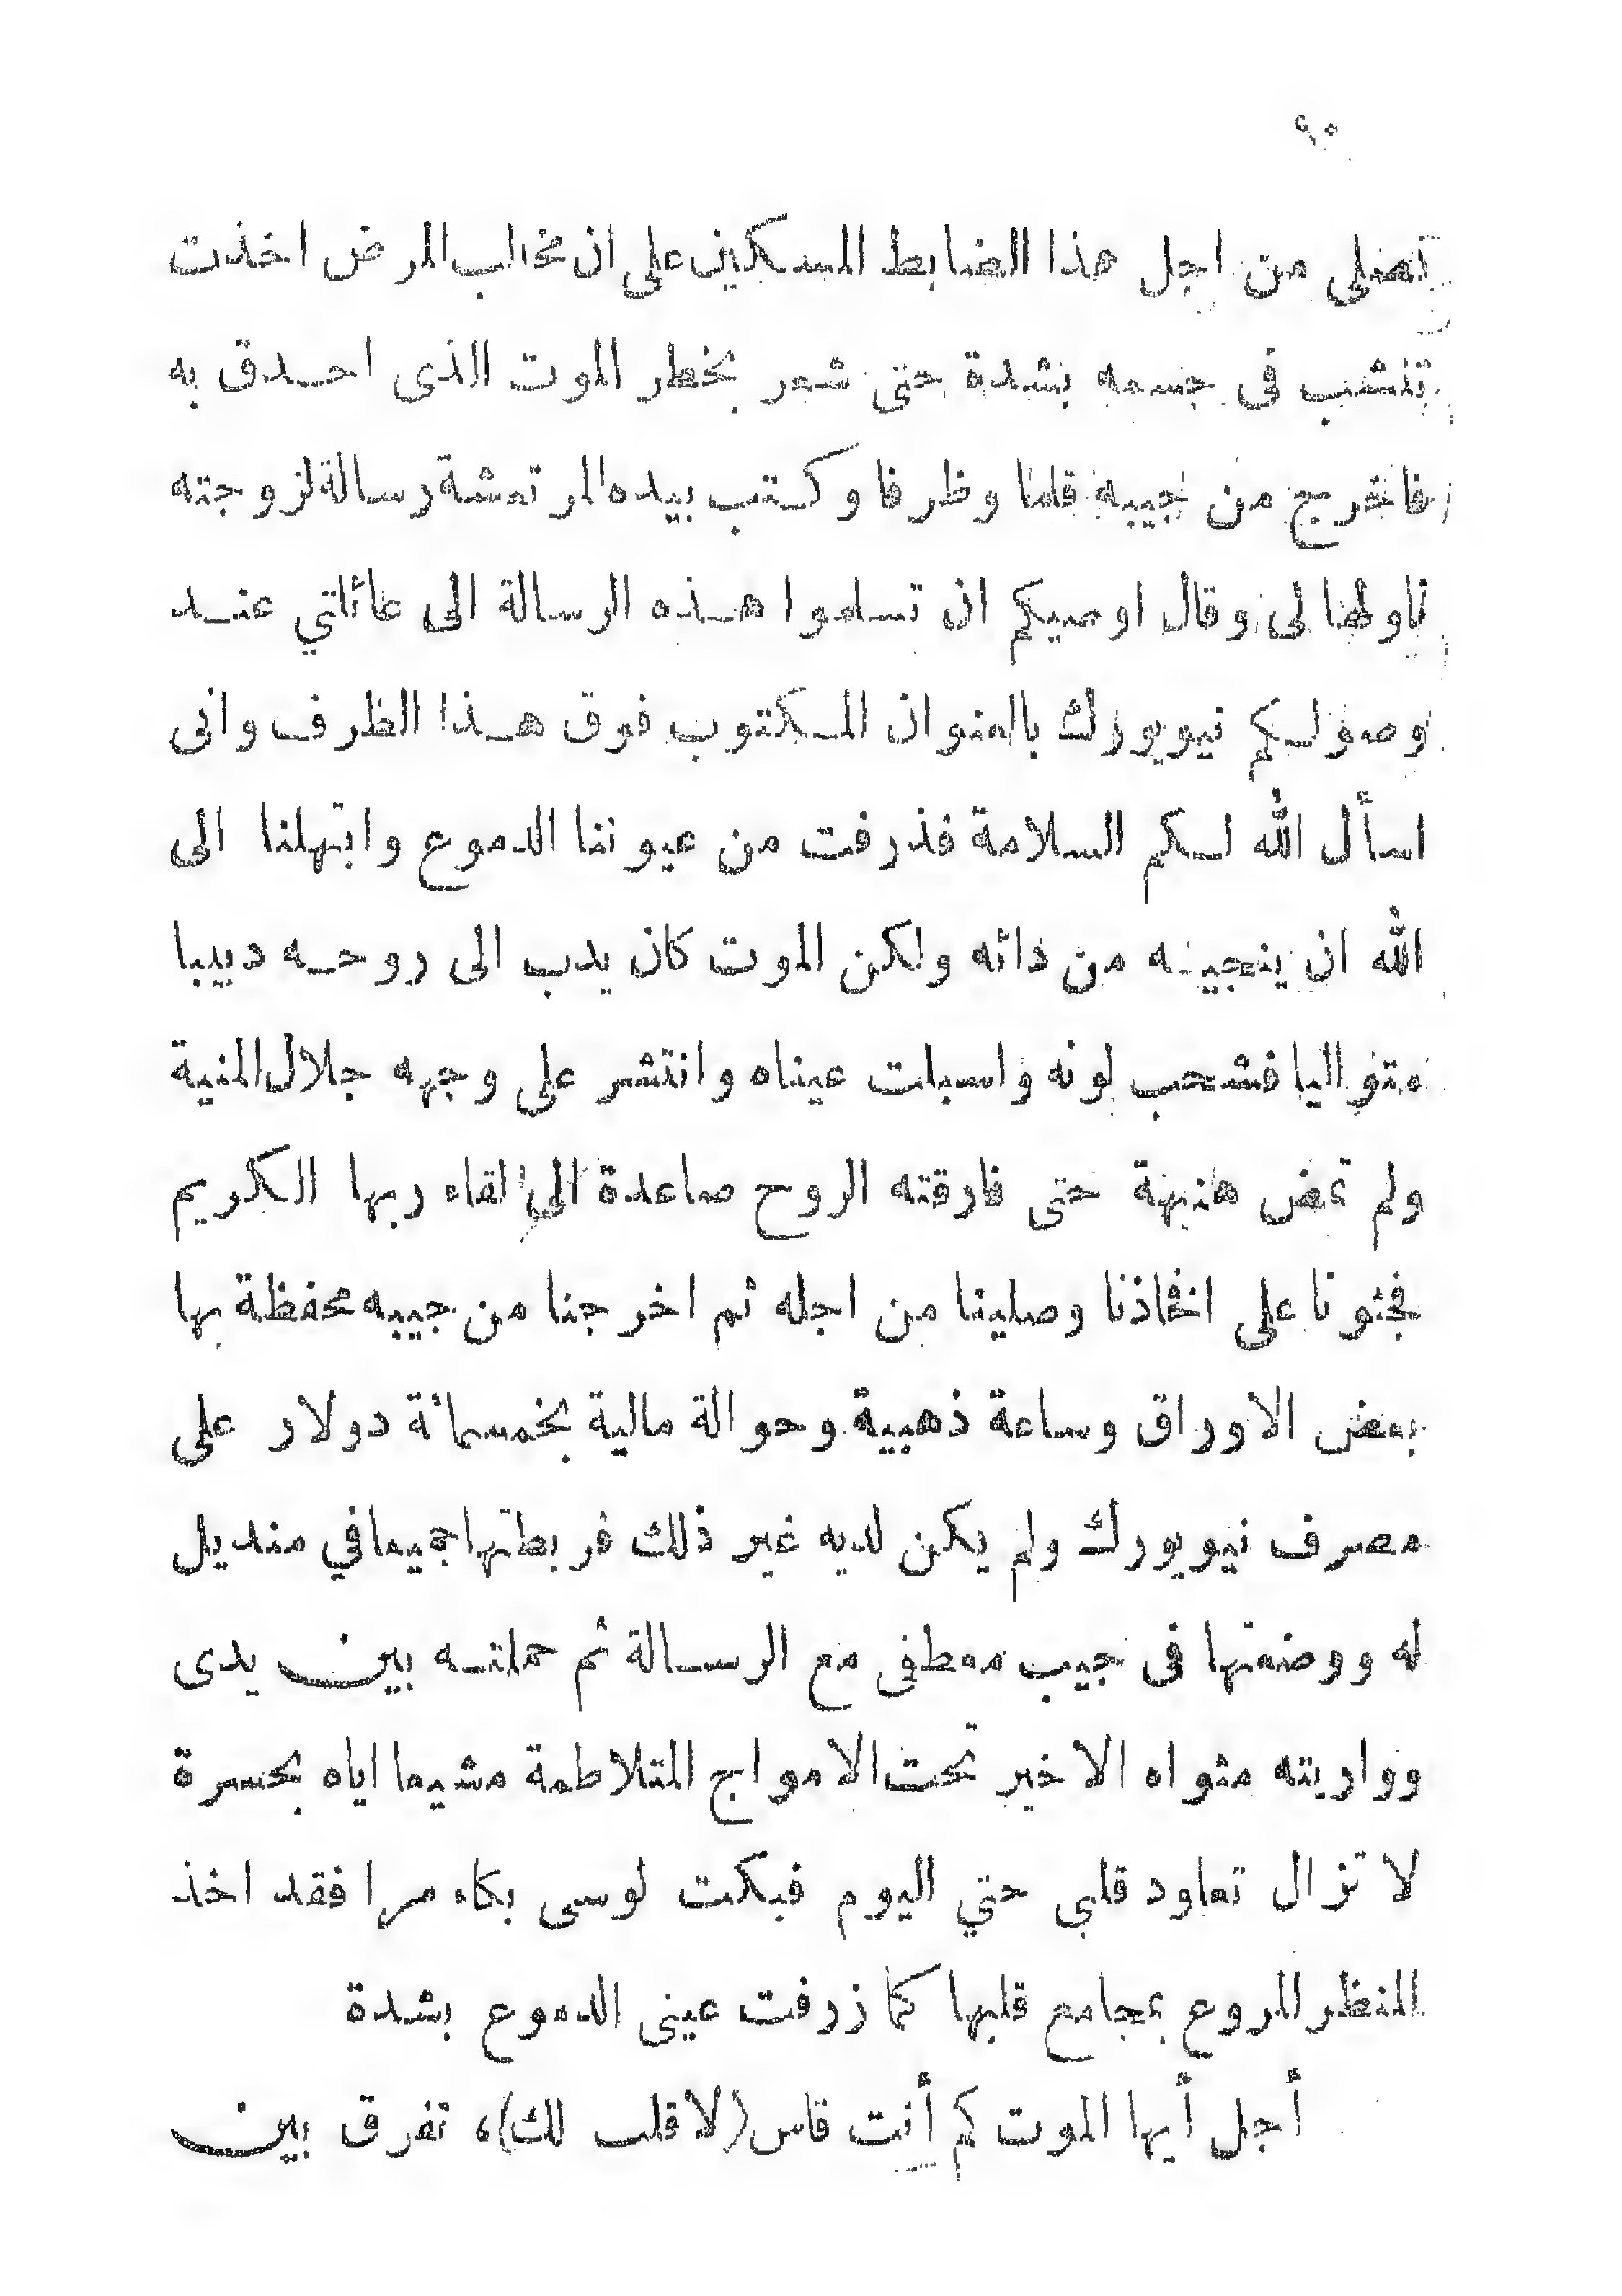 ٩٠
تصلى من اجل هذا الضابط المسكين على ان مخالب المرض اخذت
تنشب فى جسمه بشدة حتى شعر بخطر الموت الذى احدق به
فاخرج من جيبه قلما وظرفا وكتب بيده المرتعشة رسالة لزوجته
ناولها لى وقال اوصيكم ان تسلموا هذه الرسالة الى عائلتي عند
وصولكم نيويورك بالعنوان المكتوب فوق هذا الظرف وانى
اسأل الله لكم السلامة فذرفت من عيوننا الدموع وابتهلنا الى
الله ان ينجيه من دائه ولكن الموت كان يدب الى روحه دبيبا
متواليا فشحب لونه واسبلت عيناه وانتشر على وجهه جلال المنية
ولم تمض هنيهة حتى فارقته الروح صاعدة الى لقاء ربها الكريم
فجثونا على افخاذنا وصلينا من اجله ثم اخرجنا من جيبه محفظة بها
بعض الاوراق وساعة ذهبية وحوالة مالية بخمسمائة دولار على
مصرف نيويورك ولم يكن لديه غير ذلك فربطتها جميعا في منديل
له ووضعتها فى جيب معطفى مع الرسالة ثم حملته بين يدى
وواريته مثواه الاخير تحت الامواج المتلاطمة مشيعا اياه بحسرة
لا تزال تعاود قلبي حتي اليوم فبكت لوسى بكاء مرا فقد اخذ
المنظر المروع بمجامع قلبها كما زرفت عينى الدموع بشدة
أجل أيها الموت كم أنت قاس (لا قلب لك)، تفرق بين